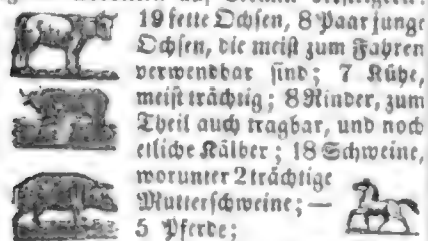 19 fette Ochsen, 8 Paar junge
Ochsen, die meist zum Fahren
verwendbar sind; 7 Kühe,
meist trächtig; 8 Rinder, zum
Theil auch tragbar, und noch
etliche Kälber; 18 Schweine,
worunter 2 trächtige
Mutterschweine; —
5 Pferde;